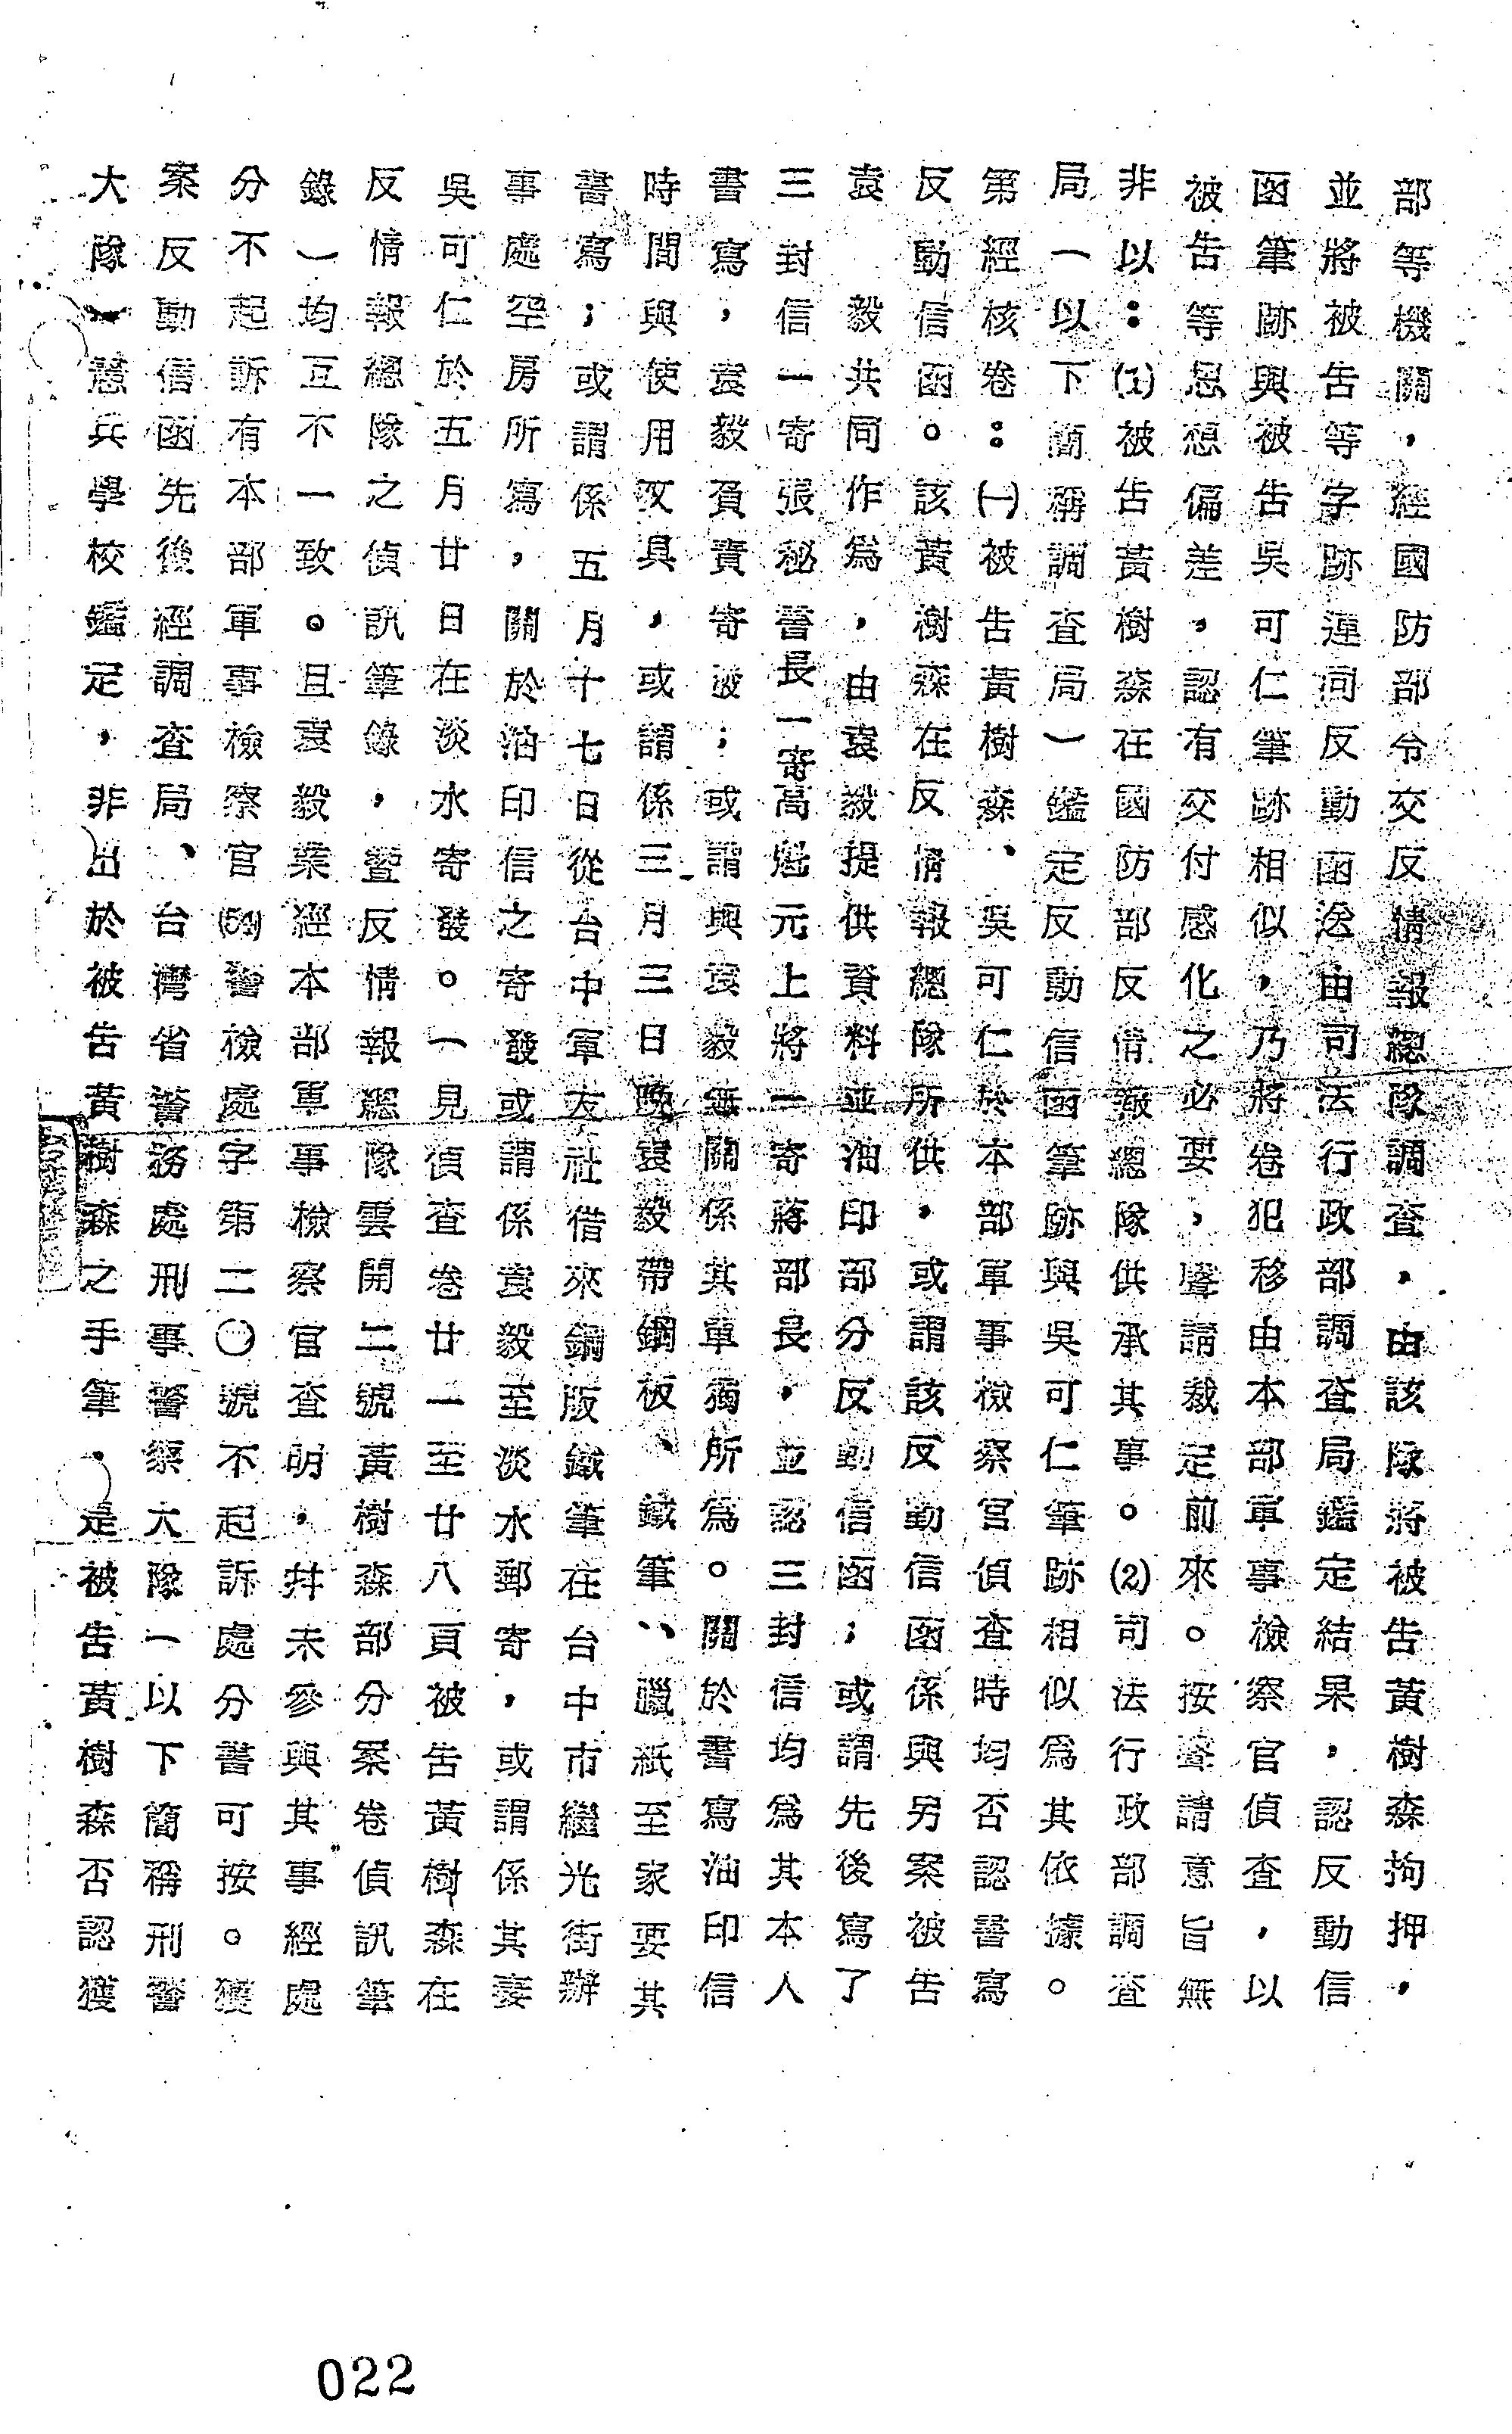 部等機關，經國防部令交反情報總隊調查，由該隊將被告黃樹森拘押，
並將被告等字跡連同反動函送由司法行政部調查局鑑定結果，認反動信
函筆跡與被告吳可仁筆跡相似，乃將卷犯移由本部軍事檢察官偵查，以
被告等思想偏差，認有交付感化之必要，聲請裁定前來。按聲請意旨無
非以：(1)被告黃樹森在國防部反情報總隊供承其事。(2)司法行政部調查
局（以下簡稱調查局）鑑定反動信函筆跡與吳可仁筆跡相似為其依據。
第經核卷：㈠被告黃樹森、吳可仁於本部軍事檢察官偵查時均否認書寫
反動信函。該黃樹森在反情報總隊所供，或謂該反動信函係與另案被告
袁　毅共同作為，由袁毅提供資料並油印部分反動信函；或謂先後寫了
三封信一寄張秘書長一寄高魁元上將一寄蔣部長，並認三封信均為其本人
書寫，袁毅負責寄遞；或謂與袁毅無關係其單獨所為。關於書寫油印信
時間與使用文具，或謂係三月三日晚袁毅帶鋼板、鐵筆、、臘紙至家要其
書寫；或謂係五月十七日從台中軍友社借來鋼版鐵筆在台中市繼光街辦
事處空房所寫，關於油印信之寄發或謂係袁毅至淡水郵寄，或謂係其妻
吳可仁於五月廿日在淡水寄發。（見偵查卷廿一至廿八頁被告黃樹森在
反情報總隊之偵訊筆錄，暨反情報總隊雲開二號黃樹森部分案卷偵訊筆
錄）均互不一致。且袁毅業經本部軍事檢察官查明，幷未參與其事經處
分不起訴有本部軍事檢察官(54)警檢處字第二〇號不起訴處分書可按。獲
案反動信函先後經調查局、台灣省警務處刑事警察大隊（以下簡稱刑警
大隊）憲兵學校鑑定，非出於被告黃樹森之手筆。是被告黃樹森否認獲
022